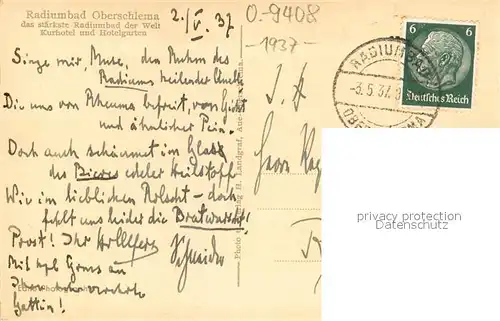 Radiumbad Oberschlema
das stärkste Radiumbad der Welt
Kurhotel und Hotelgarten
2./V. 37
O-9408
-1937-
RADIUMBAD
-3.5.37.
OBER MA
6 6
Deutsches Reich
Singe mir, Muse, den Ruhm des
Radiums heilender Quelle
Die uns von Rheuma befreit, von Gicht
und ähnlicher Pein.
Doch auch schäumet im Glas
des Bieres edeler Heilstoff
Wir im lieblichen – doch
fehlt uns leider die Bratwurst!
Prost! Ihr
Schneider
Mit Gruss an
Ihre verehrte
Gattin!
Herrn
Photo H. Landgraf, Aue
privacy protection
Datenschutz